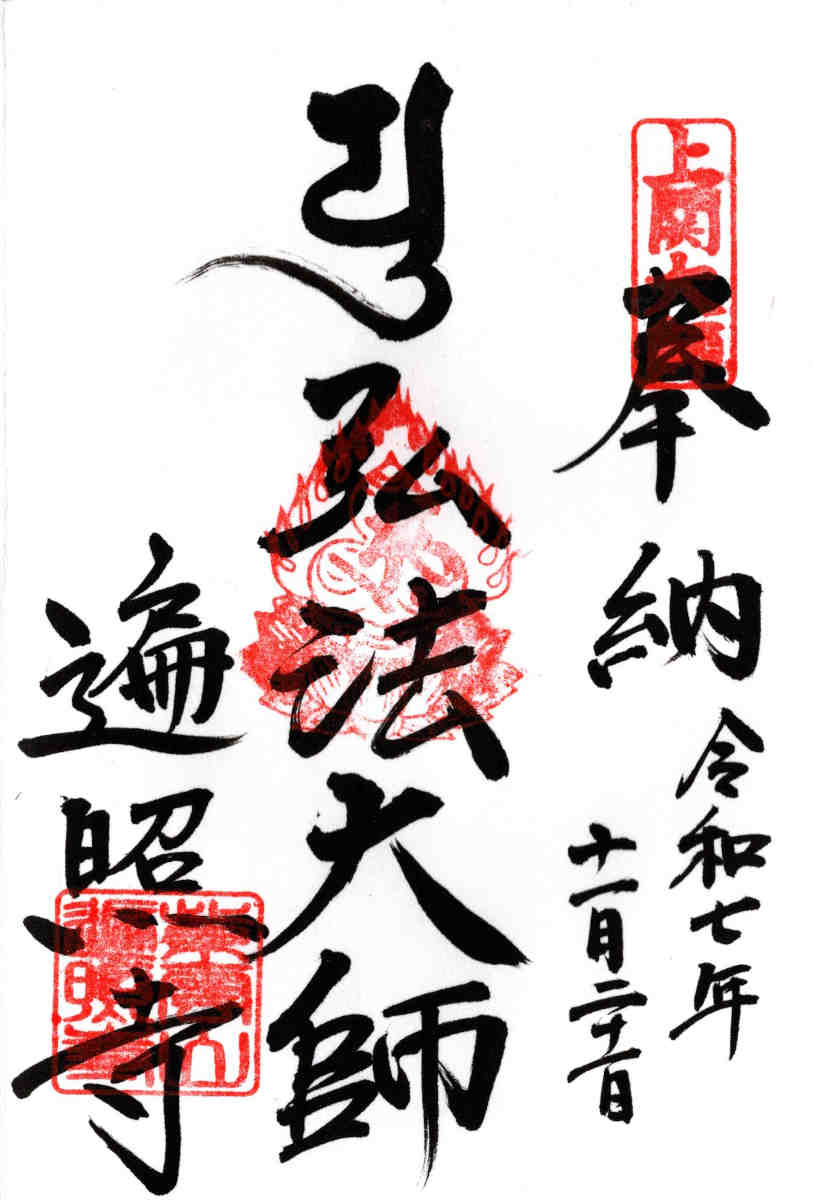 奉納
令和七年
十一月二十一日
弘法大師
遍照寺